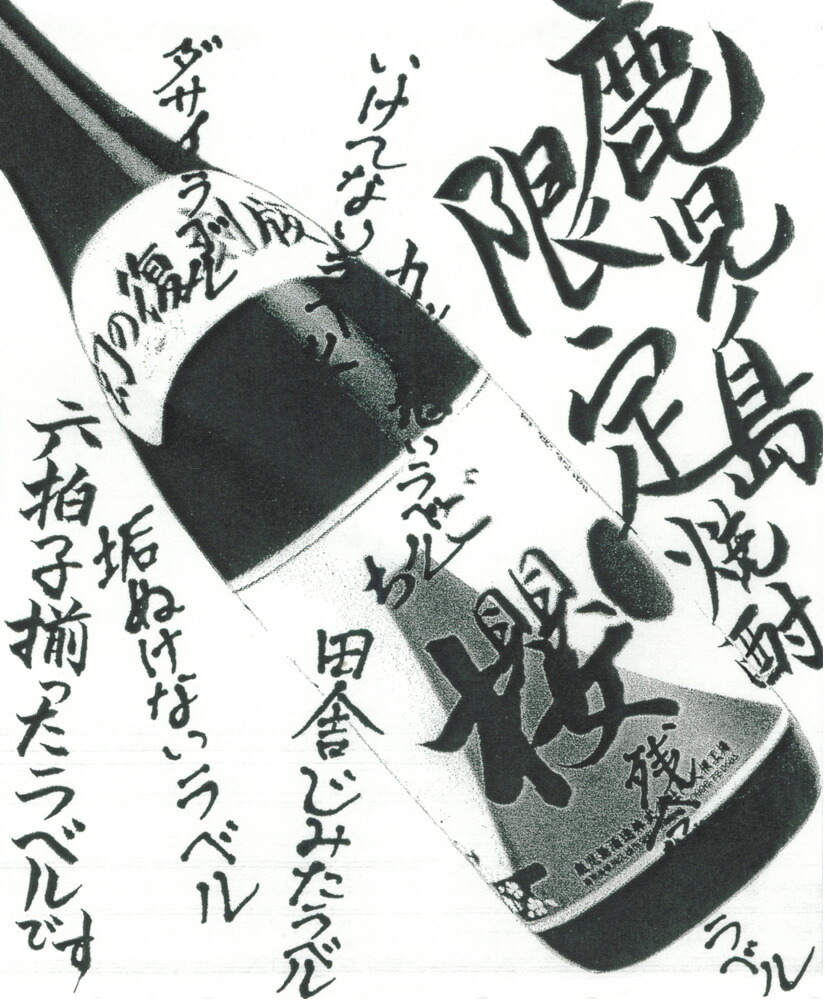 鹿児島焼酎
限定
いけてないラベル
ダサイラベル
幻の復刻版
カッ
いラベル
櫻
残
ラベル
田舎じみたラベル
垢ぬけないラベル
六拍子揃ったラベルです